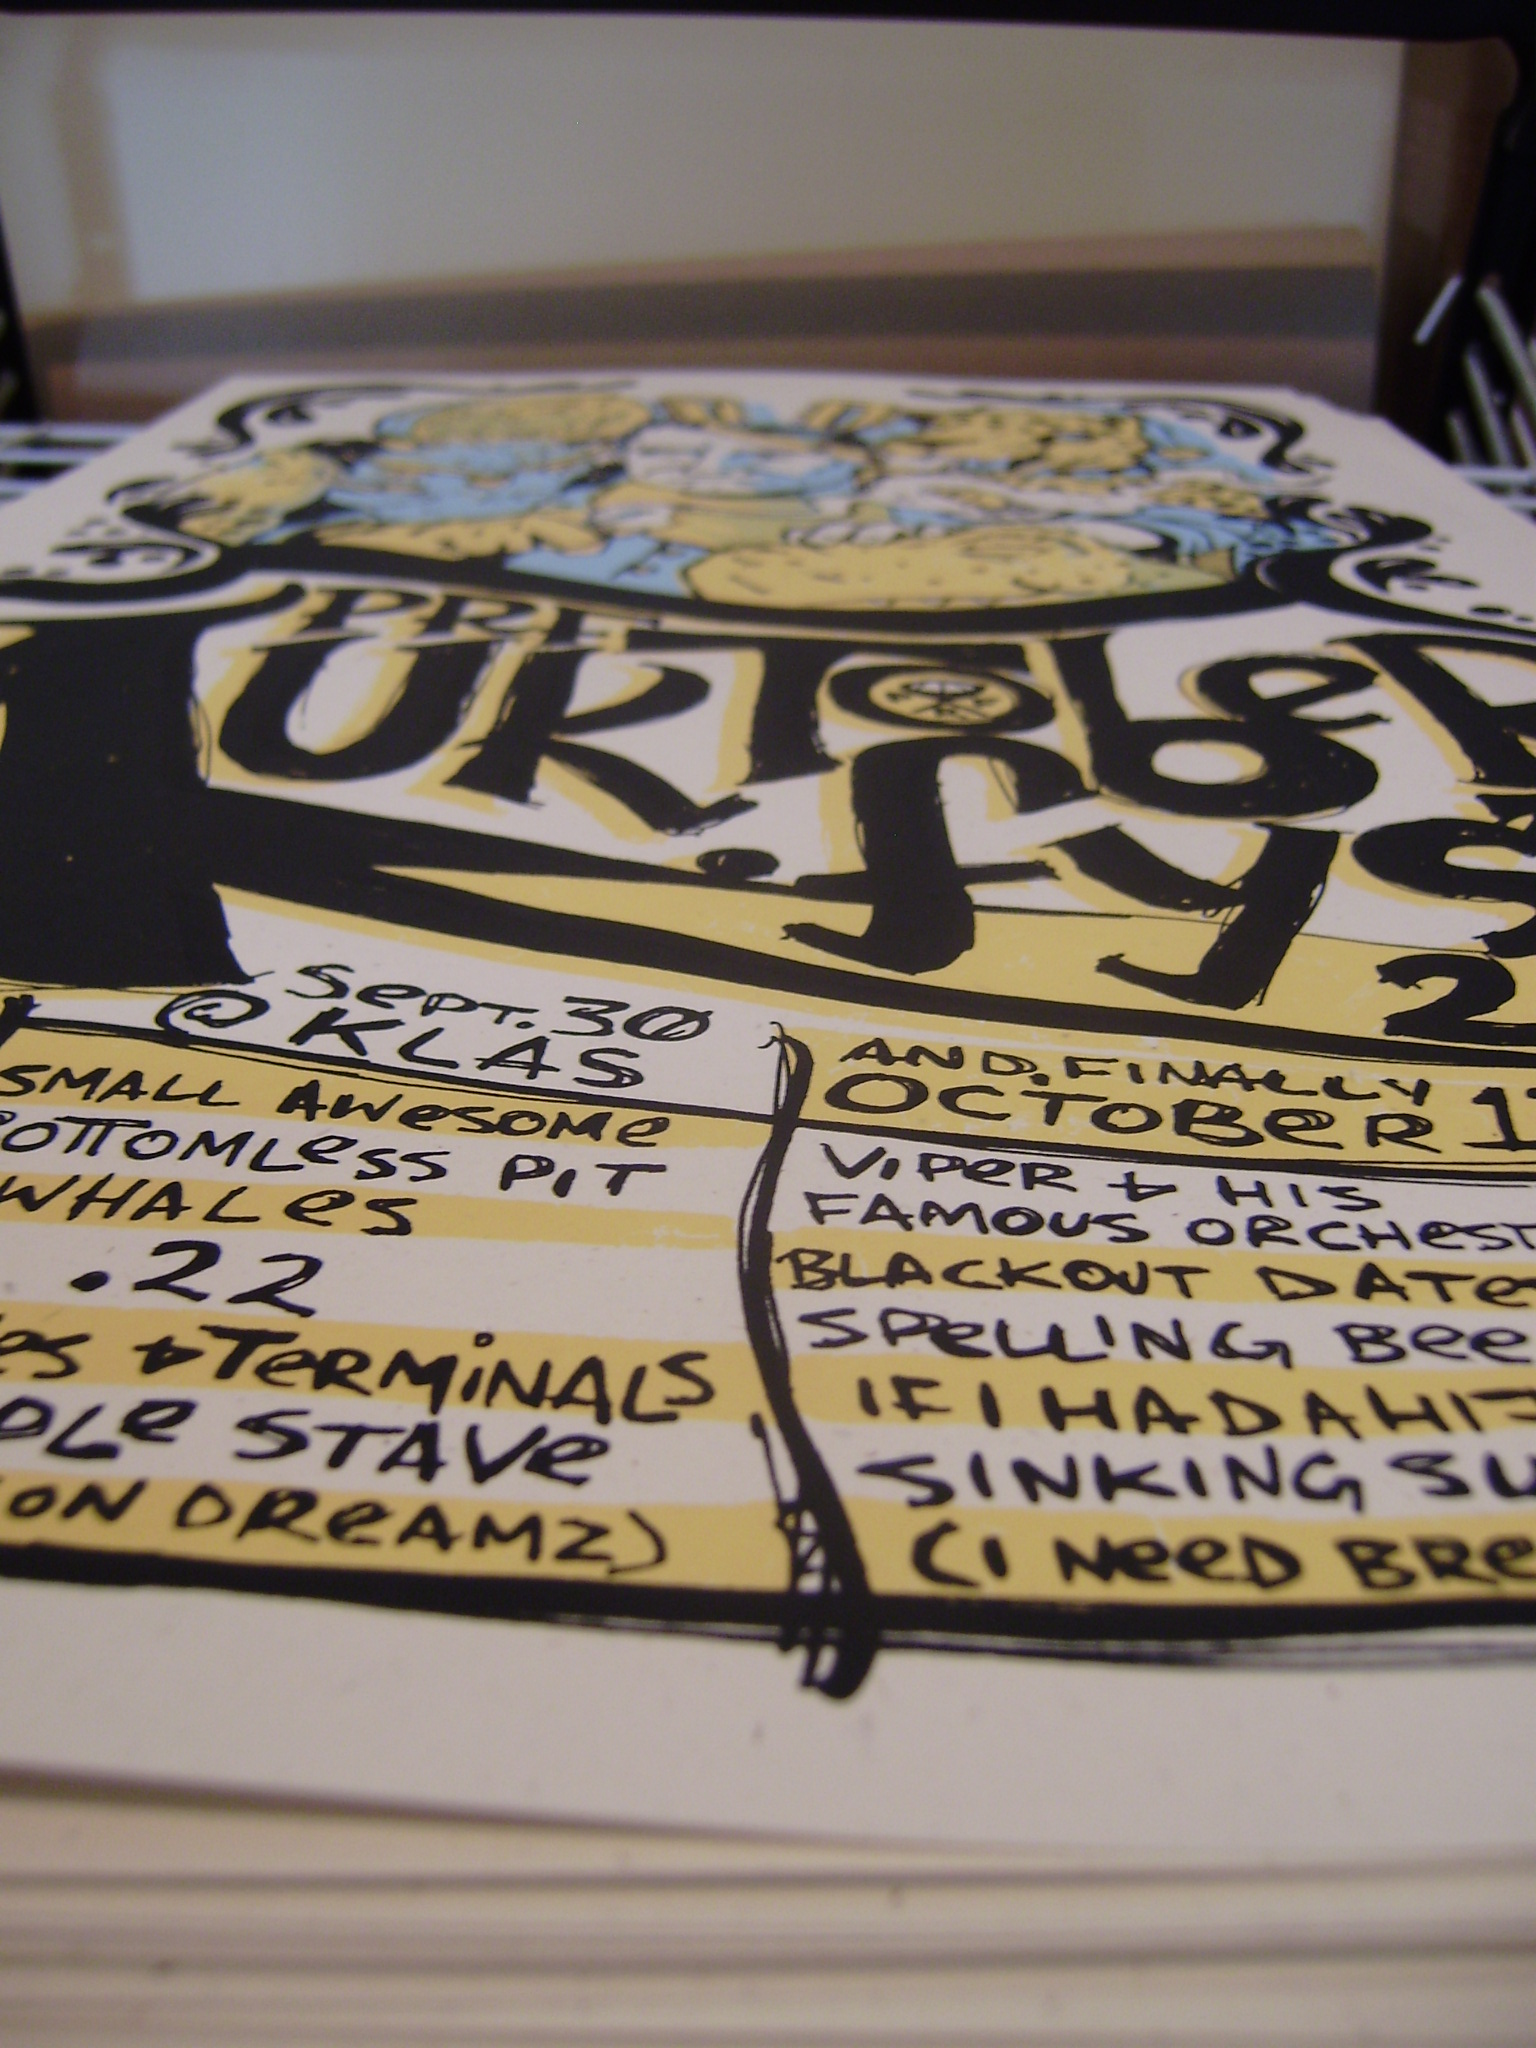 PRE
KUKTOBER
FYS
2
Sept. 30
@ KLAS
SMALL AWESOME
BOTTOMLESS PIT
WHALES
.22
es + TERMINALS
PLE STAVE
ON DREAMZ)
AND, FINALLY
OCTOBER 1
VIPER + HIS
FAMOUS ORCHEST
BLACKOUT DATE
SPELLING BEE
IF I HAD A HI
SINKING SU
(I NEED BRE